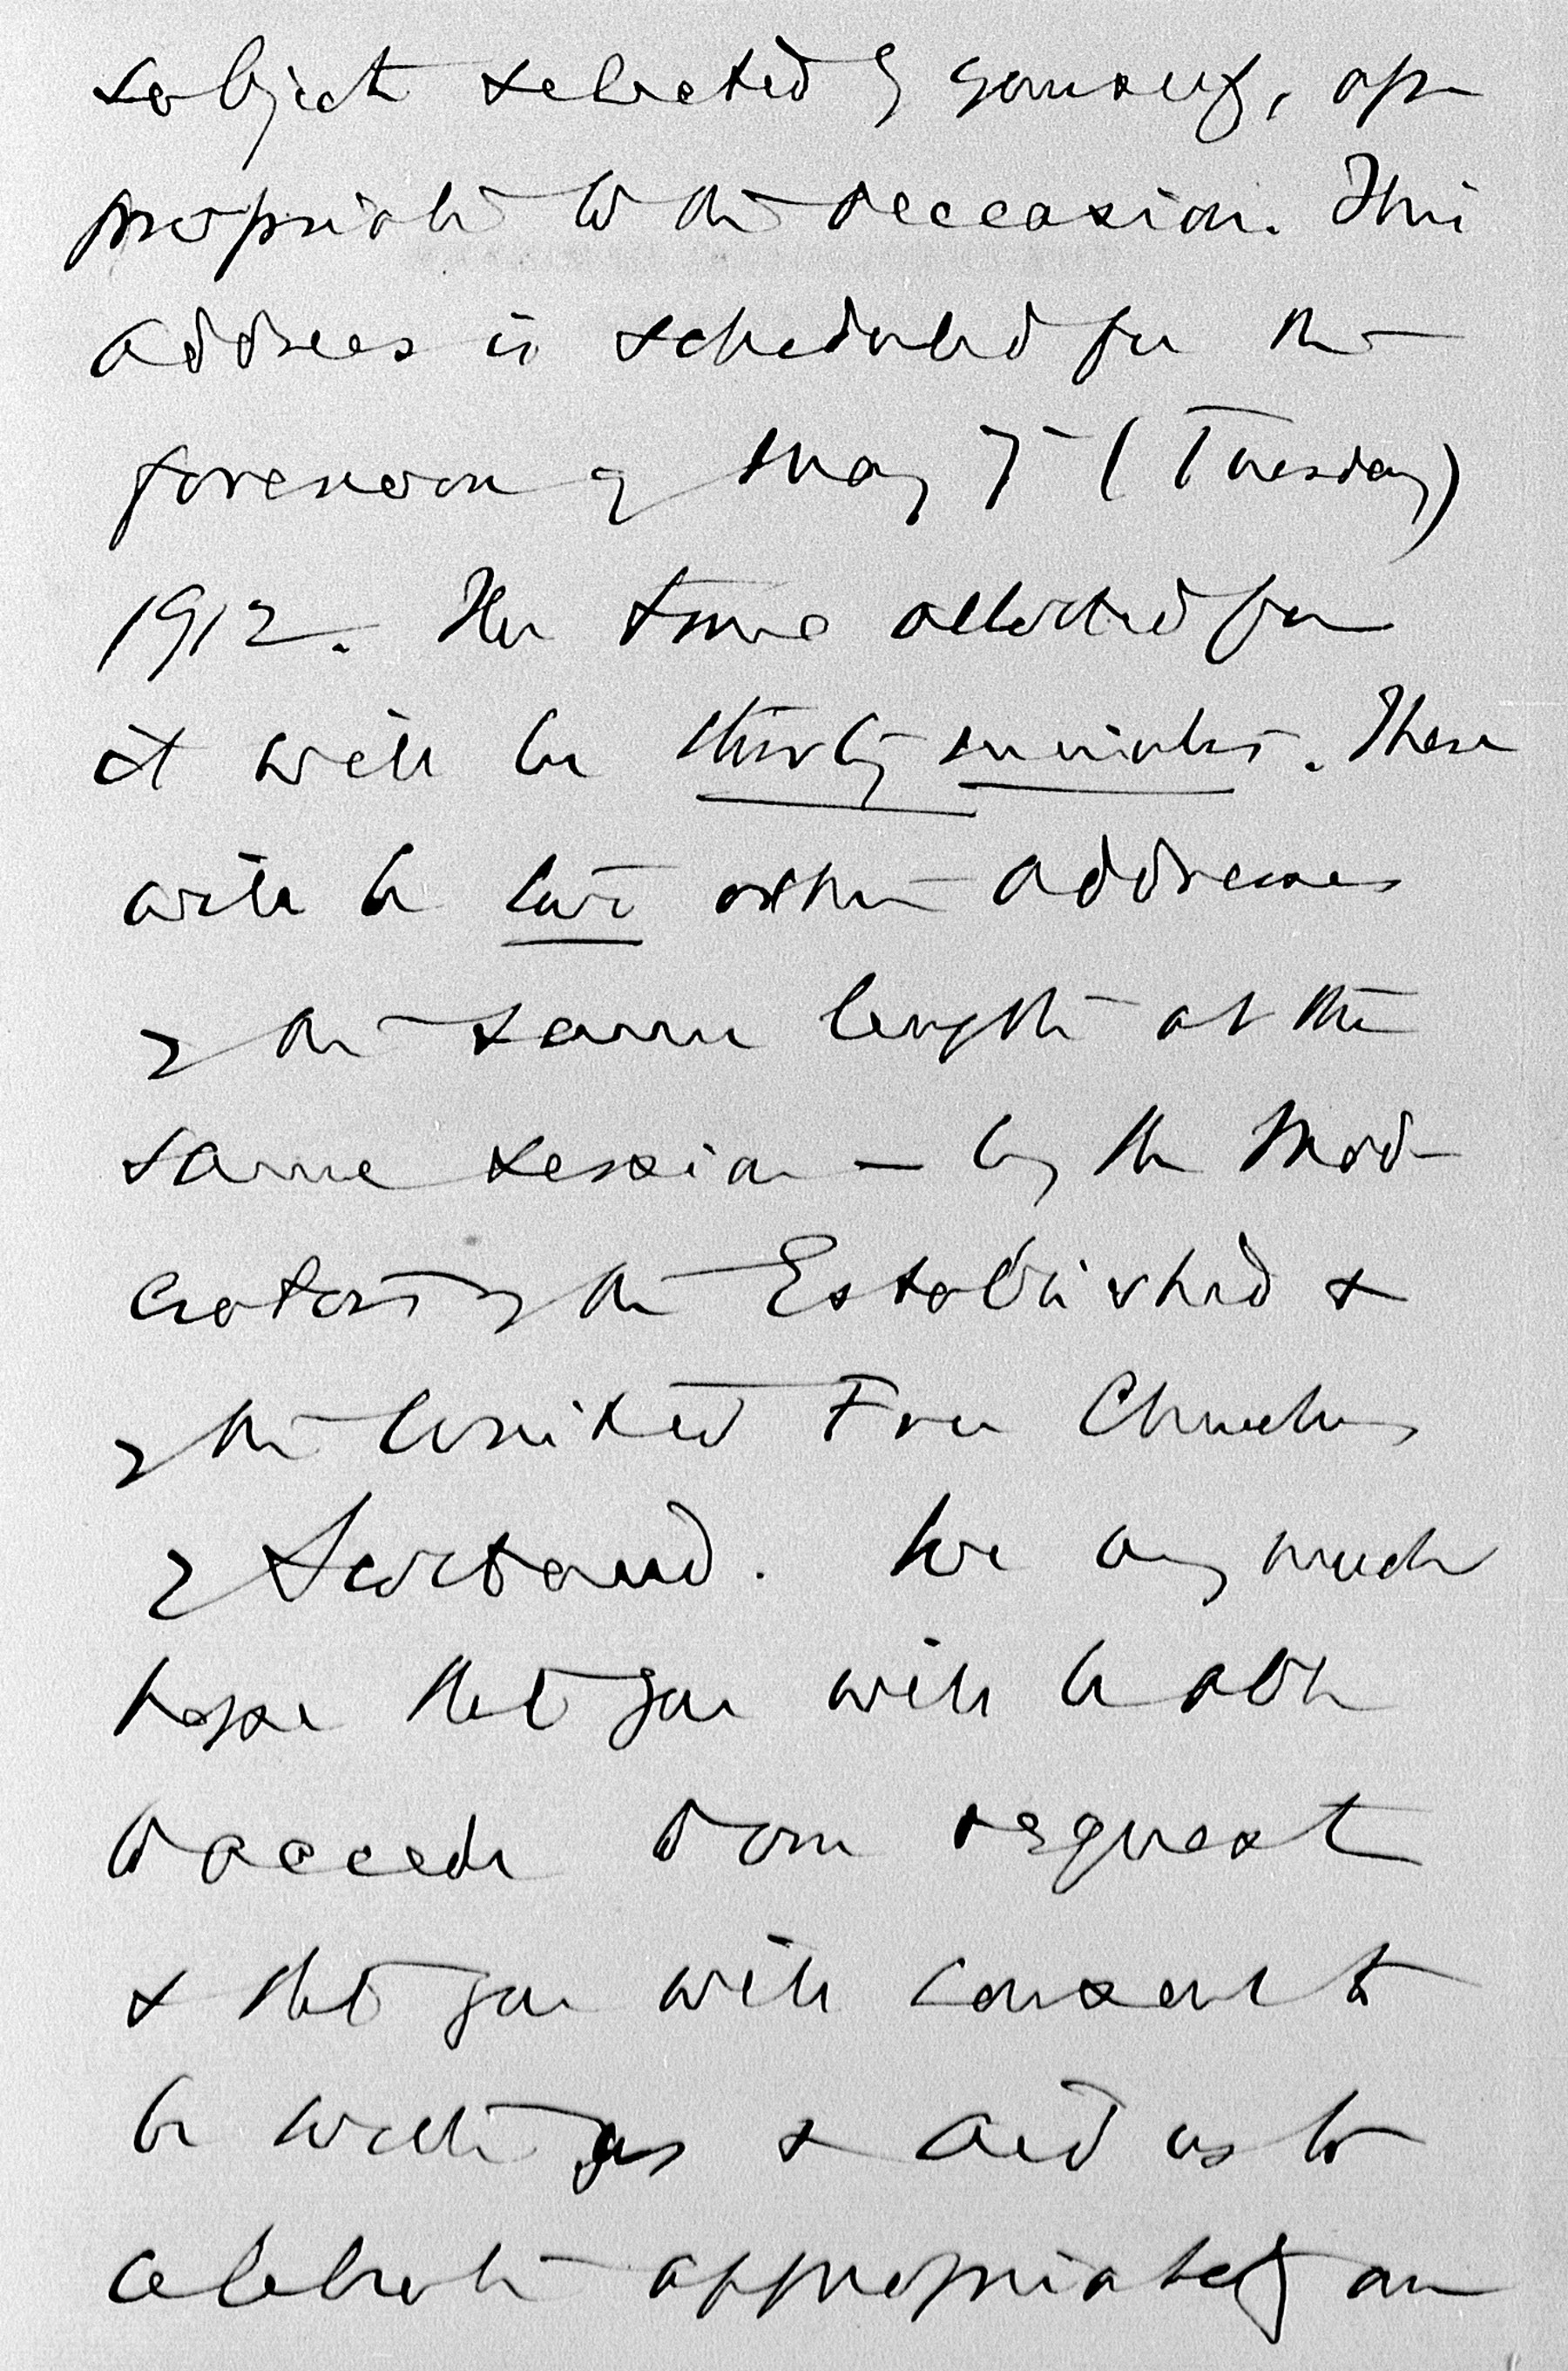 subject selected by yourself, ap-
propriate to the occasion. This
address is scheduled for the
forenoon of May 7 (Tuesday)
1912. The time allotted for
it will be thirty minutes. There
will be two other addresses
of the same length at the
same session — by the Mod-
erators of the Established &
of the United Free Churches
of Scotland. We very much
hope that you will be able
to accede to our request
& that you will consent to
be with us & aid us to
celebrate appropriately an